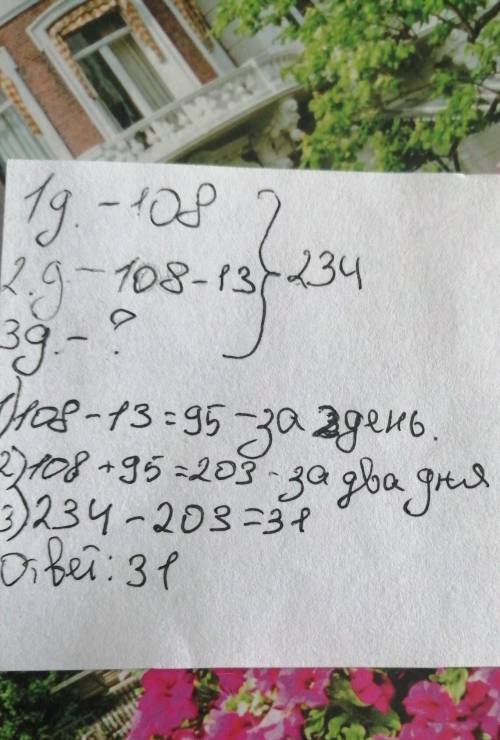 1д. - 108
2.д - 108-13 } - 234
3д. - ?
1) 108 - 13 = 95 - за 2 день.
2) 108 + 95 = 203 - за два дня
3) 234 - 203 = 31
Ответ: 31